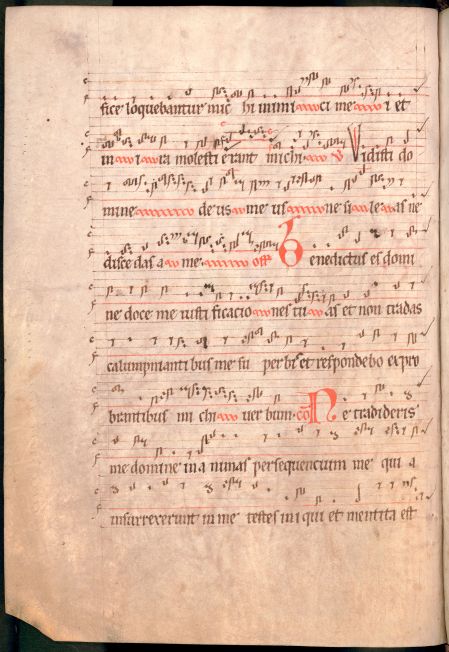 fice loquebantur michi inimi ci me i et
in i ra molesti erant michi ℣ Vidisti do
mine de us me us ne si le as ne
discedas a me off Benedictus es domi
ne doce me iusti ficacio nes tu as et non tradas
calumpnianti bus me su per bi et respondebo expro
brantibus mi chi uer bum co Ne tradideris
me domine in a nimas persequencium me qui a
insurrexerunt in me testes ini qui et mentita est